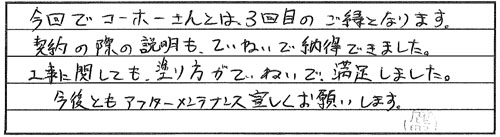 今回でコーホーさんとは、3回目のご縁となります。
契約の際の説明も、ていねいで納得できました。
工事に関しても、塗り方がていねいで、満足しました。
今後ともアフターメンテナンス宜しくお願いします。